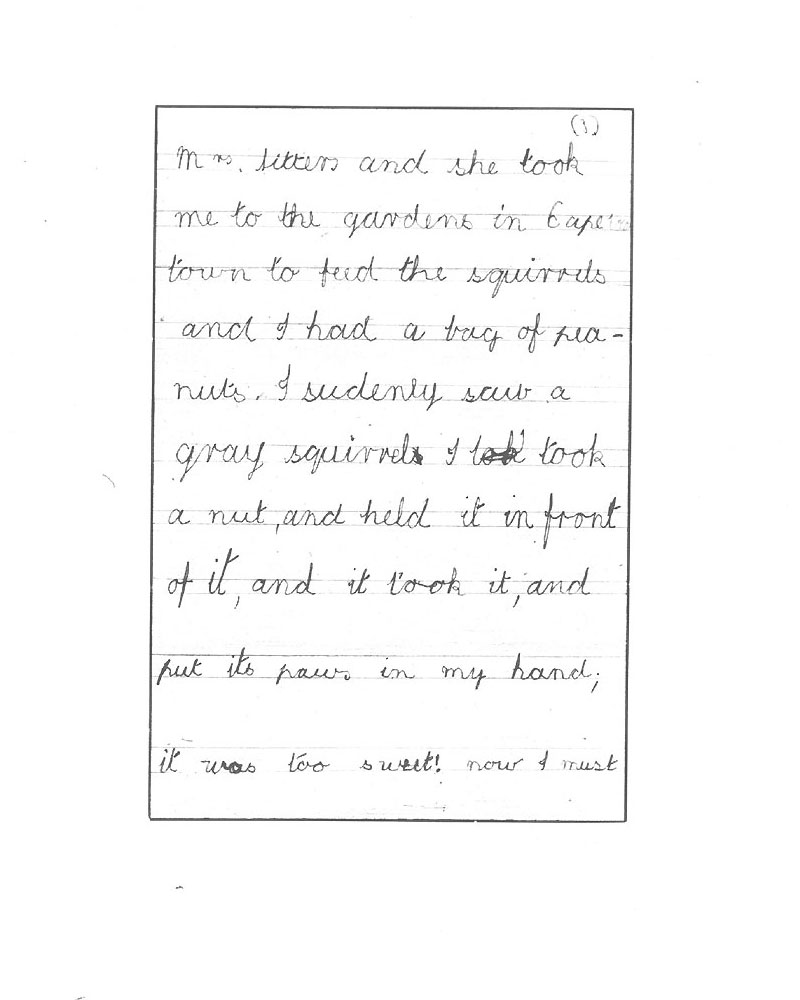 (3)
Mrs. Sitters and she took
me to the gardens in Cape
town to feed the squirrels
and I had a bag of pea-
nuts. I sudenly saw a
gray squirrel I took
a nut, and held it in front
of it, and it took it, and
put its paws in my hand;
it was too sweet! now I must